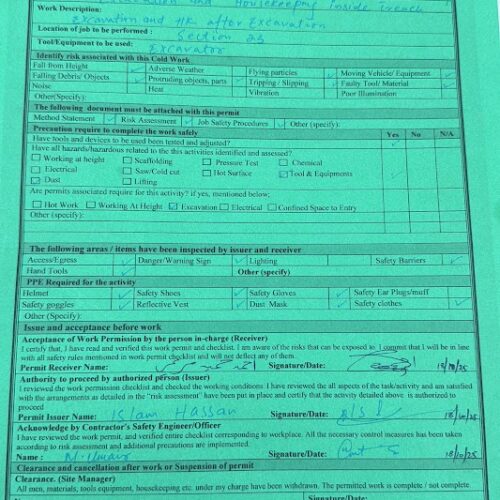 Housekeeping inside trench
Work Description:
Excavation and HK after Excavation
Location of job to be performed :
Section 23
Tool/Equipment to be used:
Excavator
Identify risk associated with this Cold Work
Fall from Height Adverse Weather Flying particles Moving Vehicle/ Equipment
Falling Debris/ Objects Protruding objects, parts Tripping / Slipping Faulty Tool/ Material
Noise Heat Vibration Poor Illumination
Other(Specify):
The following document must be attached with this permit
Method Statement Risk Assessment Job Safety Procedures Other (specify):
Precaution require to complete the work safely Yes No N/A
Have tools and devices to be used been tested and adjusted?
Have all hazards/hazardous related to the this activities identified and assessed?
Working at height Scaffolding Pressure Test Chemical
Electrical Saw/Cold cut Hot Surface Tool & Equipments
Dust Lifting
Are permits associated require for this activity? if yes, mentioned below;
Hot Work Working At Height Excavation Electrical Confined Space to Entry
Other (specify):
The following areas / items have been inspected by issuer and receiver
Access/Egress Danger/Warning Sign Lighting Safety Barriers
Hand Tools Other (specify)
PPE Required for the activity
Helmet Safety Shoes Safety Gloves Safety Ear Plugs/muff
Safety goggles Reflective Vest Dust Mask Safety clothes
Other (Specify):
Issue and acceptance before work
Acceptance of Work Permission by the person in-charge (Receiver)
I certify that, I have read and verified this work permit and checklist. I am aware of the risks that can be exposed to. I commit that I will be in line
with all safety rules mentioned in work permit checklist and will not deflect any of them.
Permit Receiver Name: Signature/Date: 18/10/25
Authority to proceed by authorized person (Issuer)
I reviewed the work permission checklist and checked the working conditions. I have reviewed the all aspects of the task/activity and am satisfied
with the arrangements as detailed in the "risk assessment" have been put in place and certify that the activity detailed above is authorized to
proceed
Permit Issuer Name: Islam Hassan Signature/Date: 18/10/25
Acknowledge by Contractor's Safety Engineer/Officer
I have reviewed the work permit, and verified entire checklist corresponding to workplace. All the necessary control measures has been taken
according to risk assessment and additional precautions are implemented.
Name : Signature/Date: 18/10/25
Clearance and cancellation after work or Suspension of permit
Clearance. (Site Manager)
All men, materials, tools equipment, housekeeping etc. under my charge have been withdrawn. The permitted work is complete / not complete.